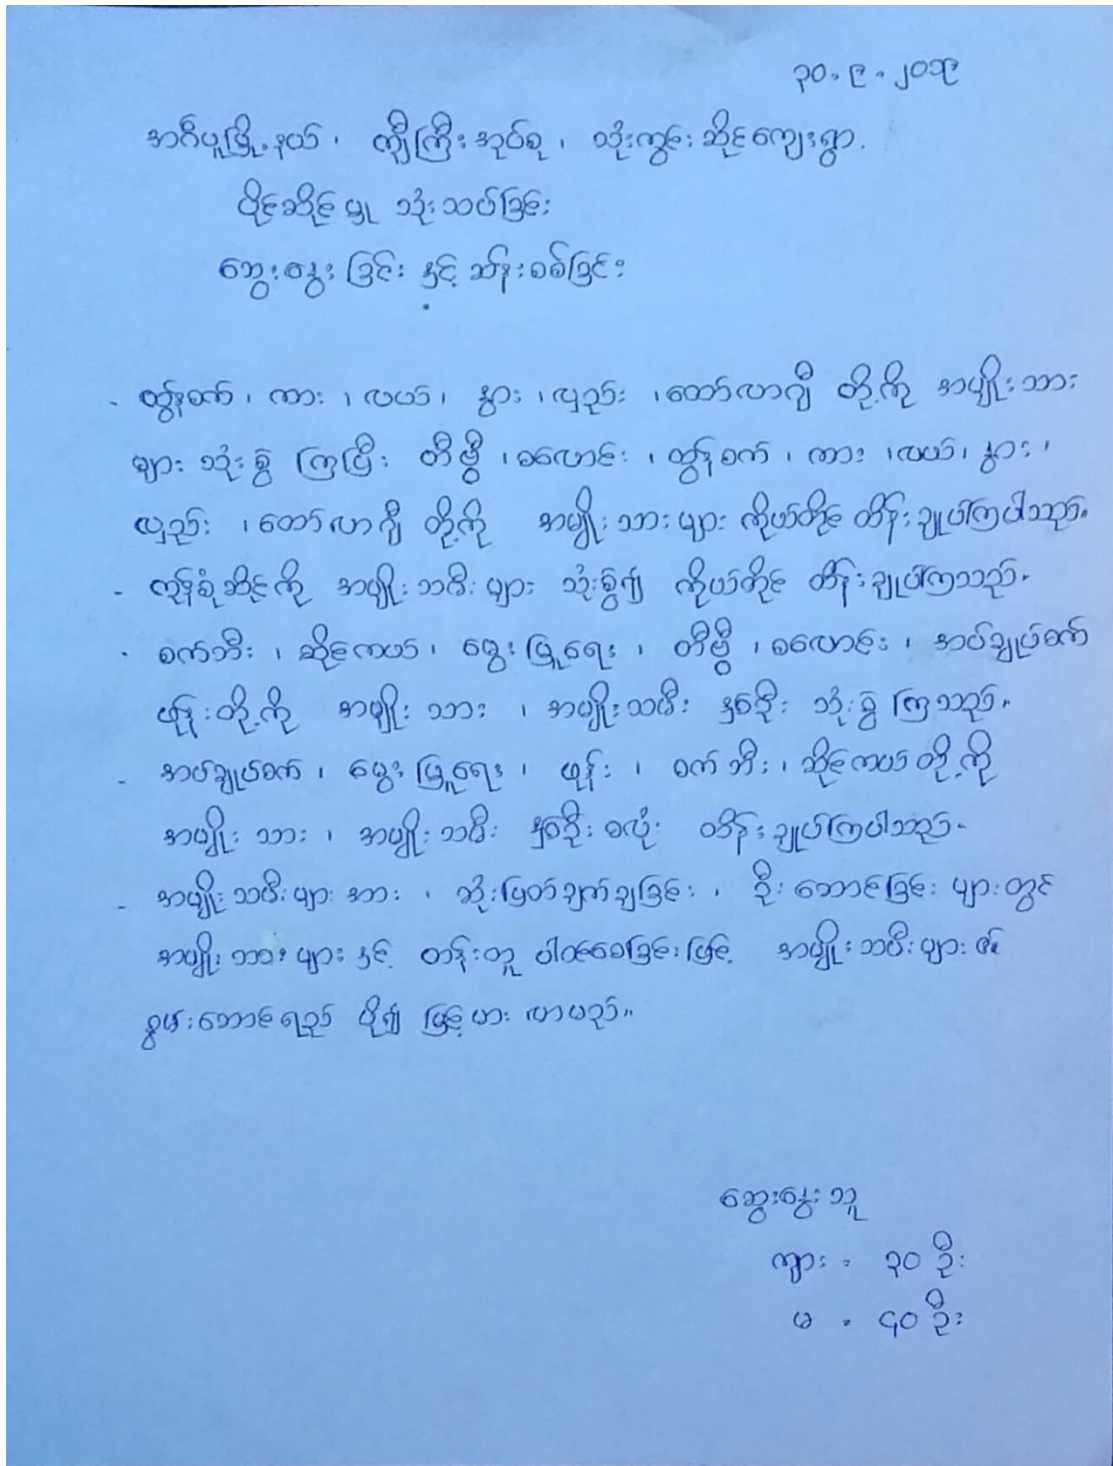 ၃၀.၉.၂၀၁၉
အင်္ဂပူမြို့နယ်၊ ကျီကြီးအုပ်စု၊ သုံးကွင်းဆိုင်ကျေးရွာ.
ပိုင်ဆိုင်မှု သုံးသပ်ခြင်း
ဆွေးနွေးခြင်း နှင့် ဆန်းစစ်ခြင်း
- ထွန်စက်၊ ကား၊ လယ်၊ နွား၊ လှည်း၊ ထော်လာဂျီ တို့ကို အမျိုးသား
များ သုံးစွဲ ကြပြီး တီဗွီ၊ စလောင်း၊ ထွန်စက်၊ ကား၊ လယ်၊ နွား၊
လှည်း၊ ထော်လာဂျီ တို့ကို အမျိုးသားများ ကိုယ်တိုင် ထိန်းချုပ်ကြပါသည်။
- ကုန်စုံဆိုင်ကို အမျိုးသမီးများ သုံးစွဲ၍ ကိုယ်တိုင် ထိန်းချုပ်ကြသည်။
- စက်ဘီး၊ ဆိုင်ကယ်၊ မွေးမြူရေး၊ တီဗွီ၊ စလောင်း၊ အပ်ချုပ်စက်
ဖုန်းတို့ကို အမျိုးသား၊ အမျိုးသမီး နှစ်ဦး သုံးစွဲ ကြသည်။
- အပ်ချုပ်စက်၊ မွေးမြူရေး၊ ဖုန်း၊ စက်ဘီး၊ ဆိုင်ကယ်တို့ကို
အမျိုးသား၊ အမျိုးသမီး နှစ်ဦးစလုံး ထိန်းချုပ်ကြပါသည်။
- အမျိုးသမီးများအား၊ ဆုံးဖြတ်ချက်ချခြင်း၊ ဦးဆောင်ခြင်းများတွင်
အမျိုးသားများနှင့် တန်းတူ ပါဝင်စေခြင်းဖြင့် အမျိုးသမီးများ၏
စွမ်းဆောင်ရည် ပို၍ မြင့်မားလာမည်။
ဆွေးနွေးသူ
ကျား = ၃၀ ဦး
မ = ၄၀ ဦး